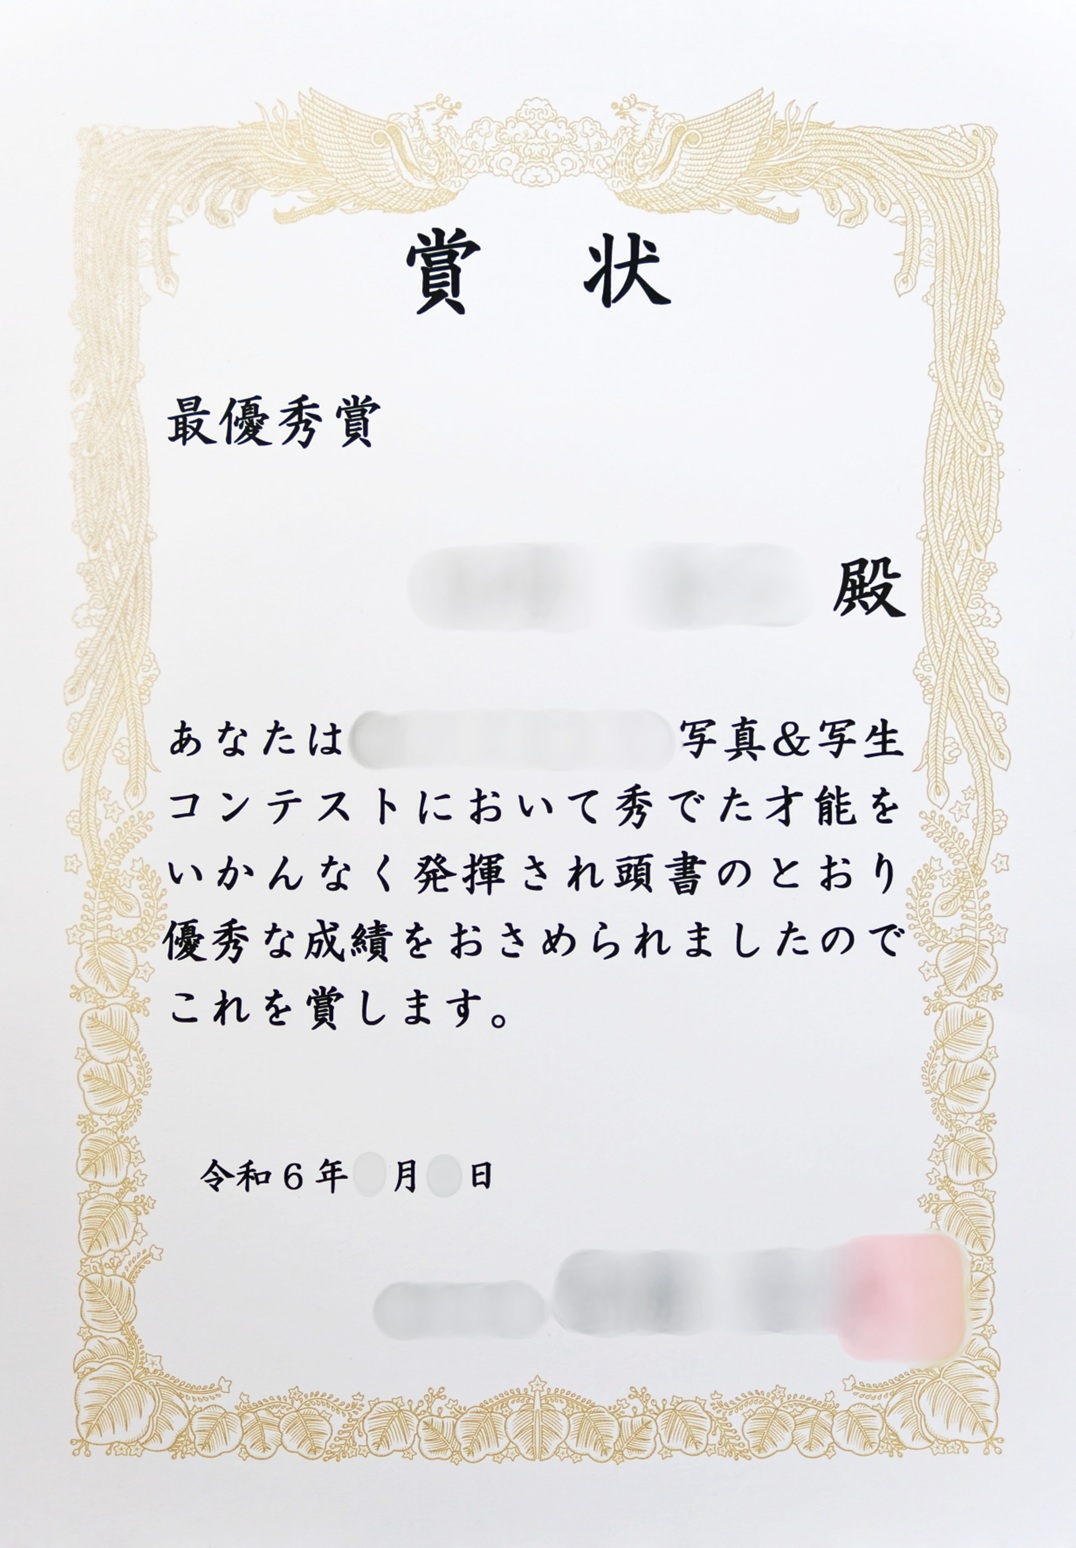 賞状
最優秀賞
殿
あなたは 写真&写生
コンテストにおいて秀でた才能を
いかんなく発揮され頭書のとおり
優秀な成績をおさめられましたので
これを賞します。
令和6年 月 日